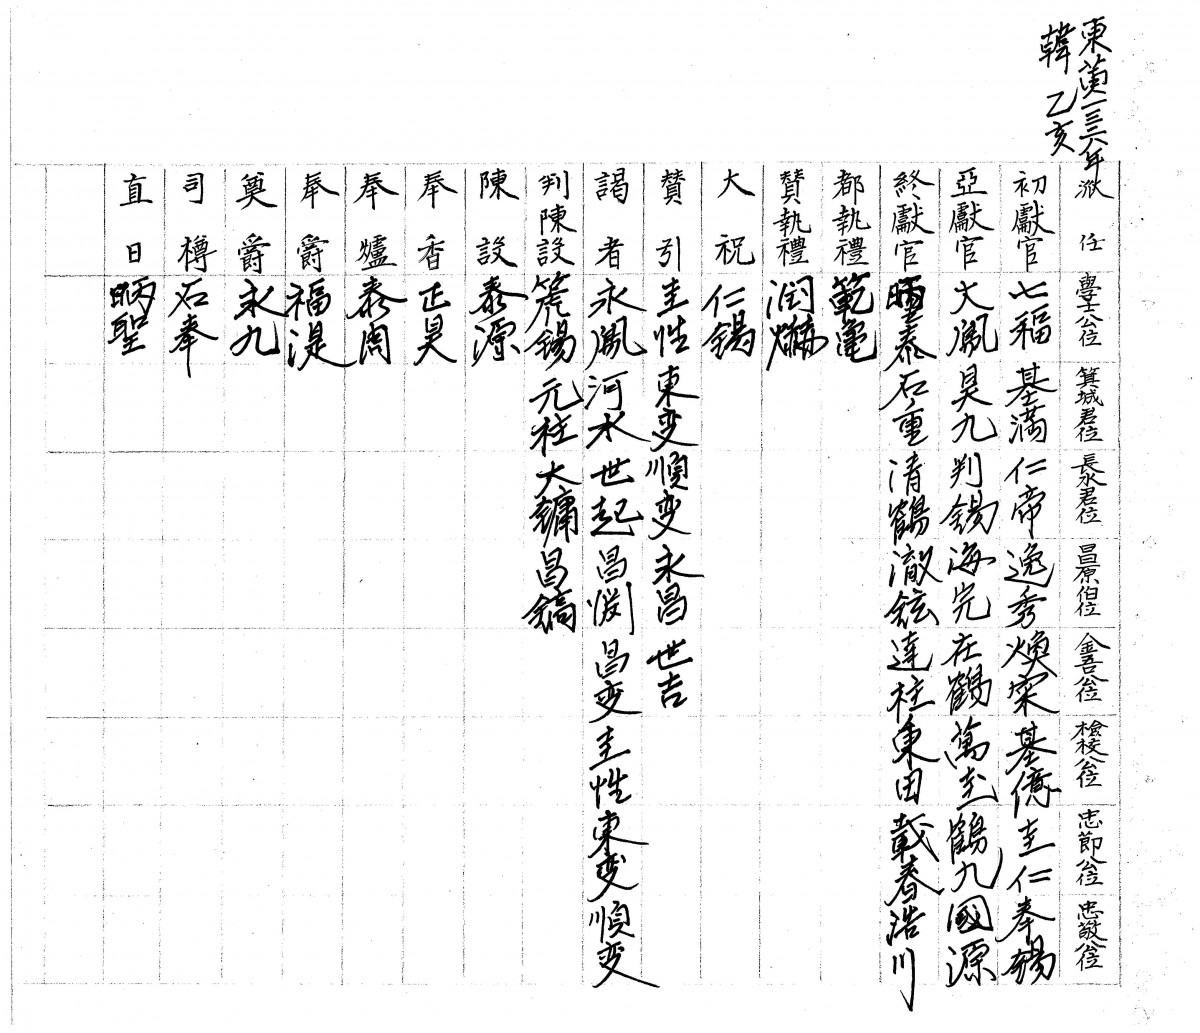 東黌一三六年
韓 乙亥
派任 學士公位 箕城君位 長水君位 昌原伯位 金吾公位 檢校公位 忠節公位 忠敬公位
初獻官 七福 基滿 仁帝 逸秀 煥宋 基億 圭仁 奉錫
亞獻官 大鳳 昊九 判錫 海完 在鶴 萬圭 鶴九 國源
終獻官 泰 石重 清鶴 澈鉉 達柱 東田 載春 浩川
都執禮 範龜
贊執禮 潤
大祝 仁錫
贊引 圭性 東変 順変 永昌 世吉
謁者 永鳳 河水 世起 昌渕 昌変 圭性 東変 順変
判陳設 箎錫 元柱 大鏞 昌鎬
陳設 泰源
奉香 正昊
奉爐 泰周
奉爵 福湜
奠爵 永九
司樽 石奉
直日 昞聖